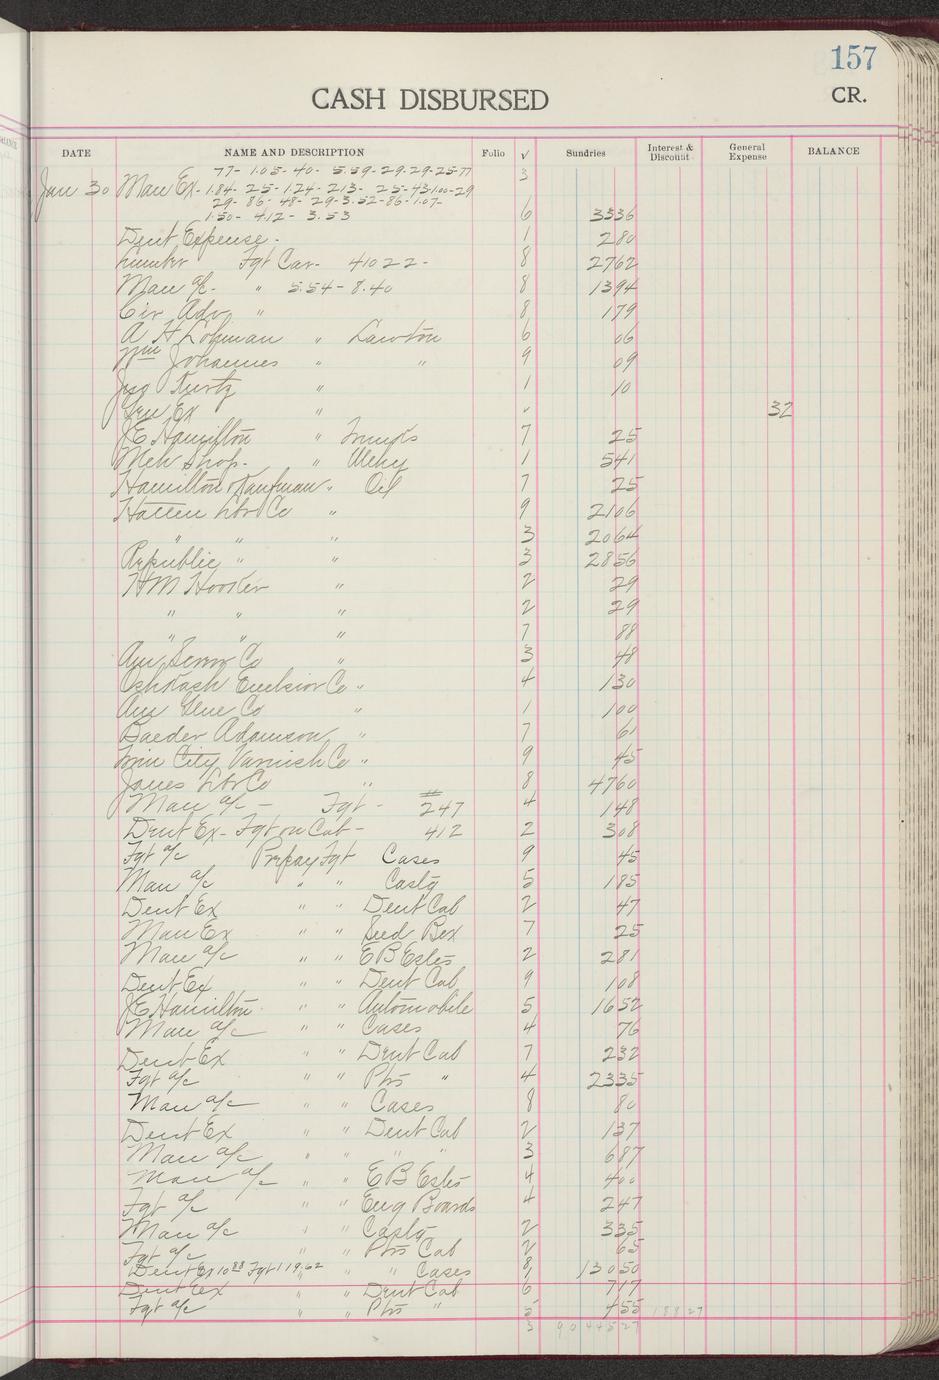 157
CASH DISBURSED
CR.
DATE NAME AND DESCRIPTION Folio √ Sundries Interest & Discount General Expense BALANCE
77- 1.05- 40- 5.59-29-29-25-77 3
Jan 30 Man Ex- 1.84- 25- 1.24- 213- 25-43-1.00-29
29- 86- 48- 29-3.52-86-1.07-
1.50- 4.12- 3.53 6 3336
Dent Expense- 1 280
Lumber Fgt Car- 41022- 8 2762
Man a/c- " 5.54-8.40 8 1394
Cir Adv " 8 179
A H Lohman " Lawton 6 06
Wm Johannes " " 9 09
Jno Kurtz " 1 10
Gen Ex " " 32
JE Hamilton " 7 25
Meh Shop- " 1 541
Hamilton & Kaufman " Oil 7 25
Hatten Lbr Co " 9 2106
" " " 3 2064
Republic " " 3 2856
HM Hooker " 2 29
" " " 2 29
" " " 7 88
Am Screw Co " 3 48
Oshkosh Excelsior Co " 4 130
Am Glue Co " 1 100
Baeder Adamson " 7 61
Twin City Varnish Co " 9 45
Janes Lbr Co " 8 4760
Man a/c - Fgt - # 247 4 148
Dent Ex- Fgt on Cab- 412 2 308
Fgt a/c Prepay Fgt Cases 9 45
Man a/c " " Castg 5 185
Dent Ex " " Dent Cab 2 47
Man Ex " " Seed Bex 7 25
Man a/c " " E B Estes 2 281
Dent Ex " " Dent Cab 9 108
JE Hamilton " " Automobile 5 1652
Man a/c " " Cases 4 76
Dent Ex " " Dent Cab 7 232
Fgt a/c " " Pts " 4 2335
Man a/c " " Cases 8 80
Dent Ex " " Dent Cab 2 137
Man a/c " " " " 3 687
Man a/c " " E B Estes 4 400
Fgt a/c " " Eng Boards 4 247
Man a/c " " Castg 2 335
Fgt a/c " " Pts Cab 2 65
Dent Ex 10 88 Fgt 119.62 " " Cases 8 13050
Dent Ex " " Dent Cab 6 717
Fgt a/c " " Pts " 5 455 188 27
3 90 445 27